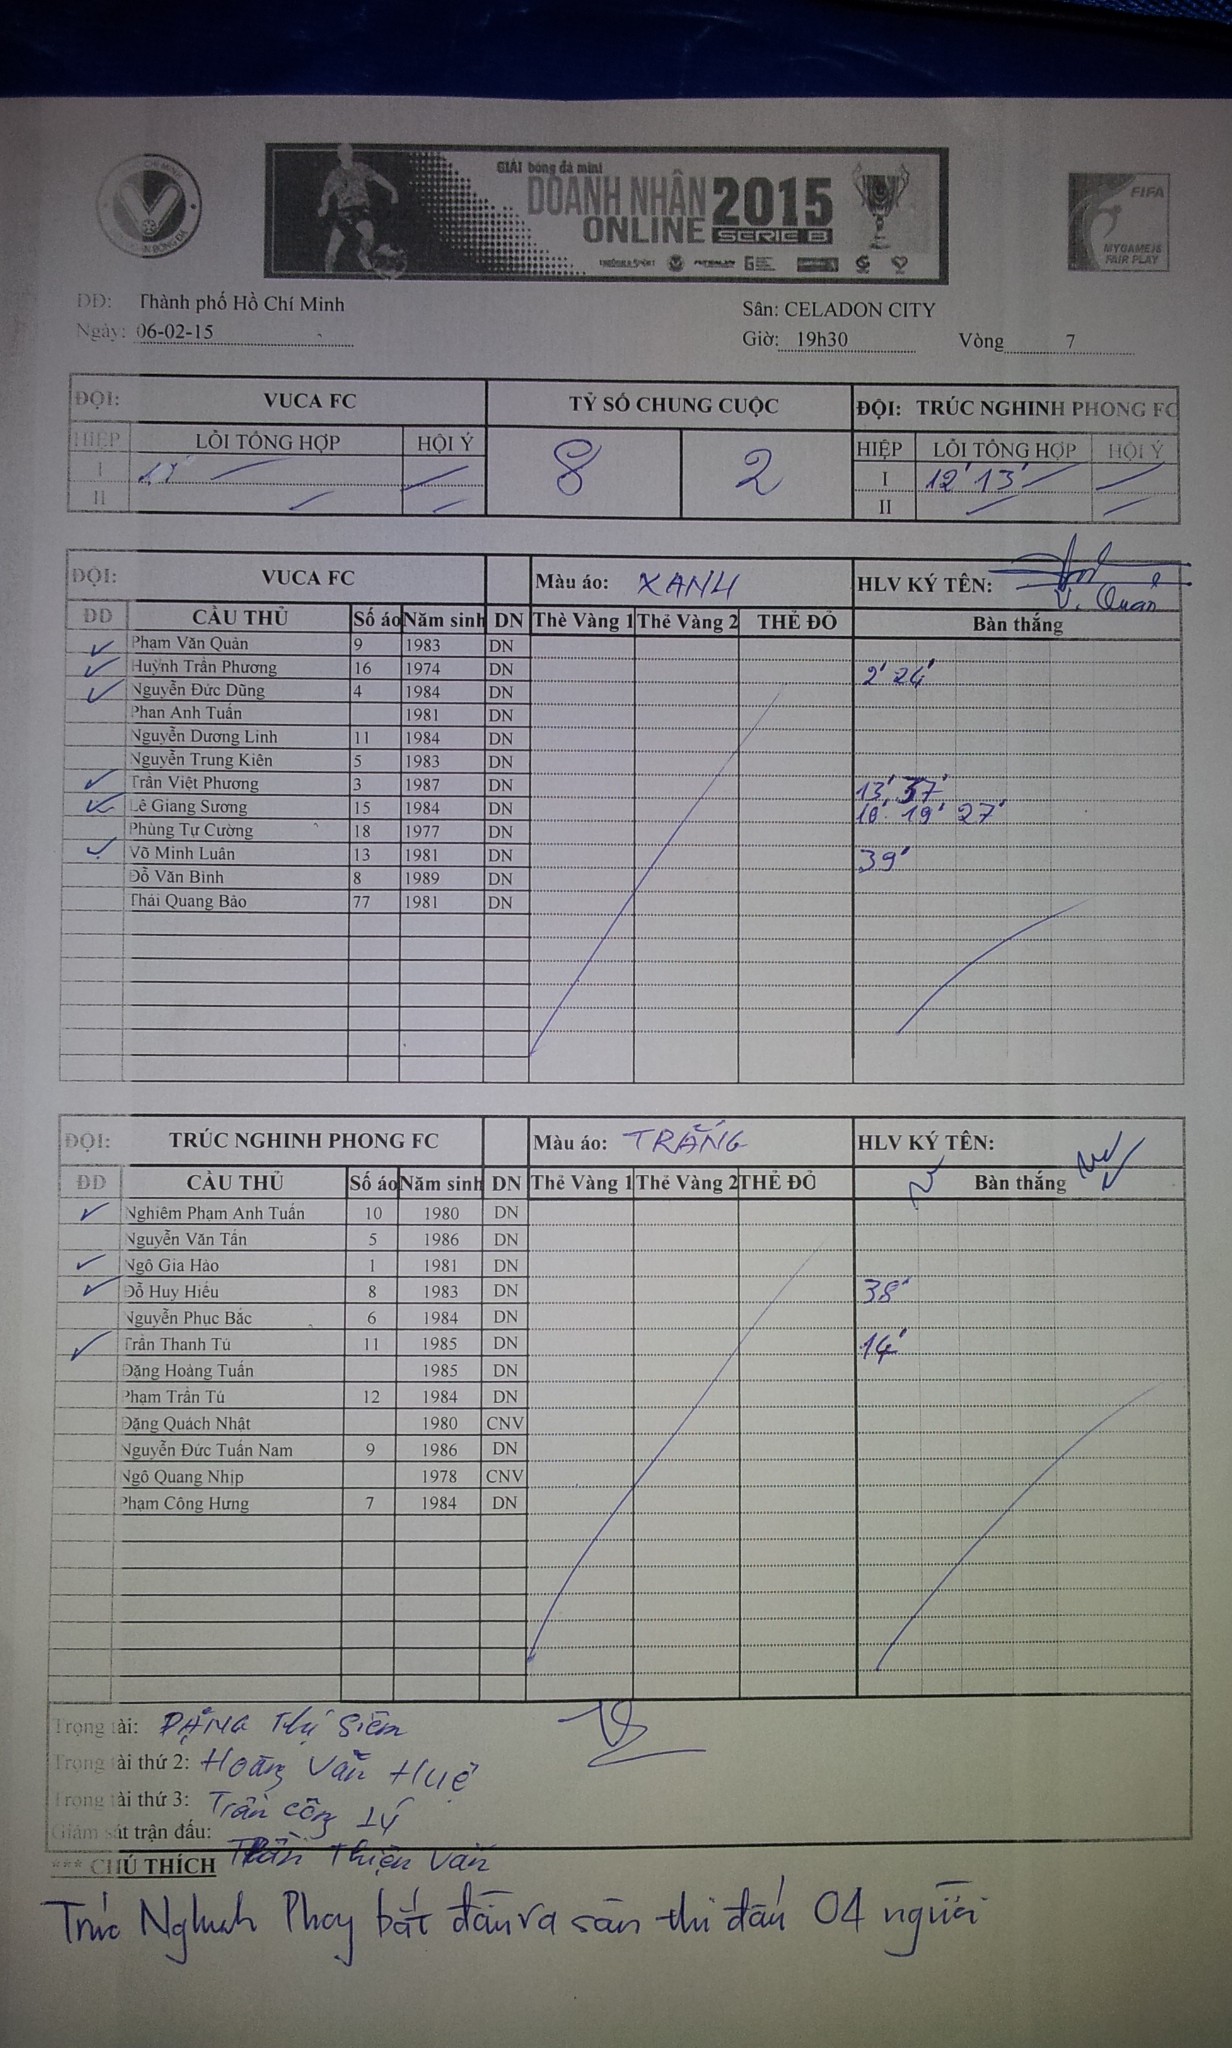 GIẢI bóng đá mini
DOANH NHÂN 2015
ONLINE SERIE B
FIFA
MY GAME IS
FAIR PLAY
DD: Thành phố Hồ Chí Minh
Sân: CELADON CITY
Ngày: 06-02-15
Giờ: 19h30 Vòng 7
ĐỘI: VUCA FC TỶ SỐ CHUNG CUỘC ĐỘI: TRÚC NGHINH PHONG FC
HIỆP LỖI TỔNG HỢP HỘI Ý 8 2 HIỆP LỖI TỔNG HỢP HỘI Ý
I I 12' 13'
II II
ĐỘI: VUCA FC Màu áo: XANH HLV KÝ TÊN: V. Quản
ĐD CẦU THỦ Số áo Năm sinh DN Thẻ Vàng 1 Thẻ Vàng 2 THẺ ĐỎ Bàn thắng
Phạm Văn Quản 9 1983 DN
Huỳnh Trần Phương 16 1974 DN 2' 24'
Nguyễn Đức Dũng 4 1984 DN
Phan Anh Tuấn 1981 DN
Nguyễn Dương Linh 11 1984 DN
Nguyễn Trung Kiên 5 1983 DN
Trần Việt Phương 3 1987 DN 13' 37'
Lê Giang Sương 15 1984 DN 18' 19' 27'
Phùng Tự Cường 18 1977 DN
Võ Minh Luân 13 1981 DN 39'
Đỗ Văn Bình 8 1989 DN
Thái Quang Bảo 77 1981 DN
ĐỘI: TRÚC NGHINH PHONG FC Màu áo: TRẮNG HLV KÝ TÊN:
ĐD CẦU THỦ Số áo Năm sinh DN Thẻ Vàng 1 Thẻ Vàng 2 THẺ ĐỎ Bàn thắng
Nghiêm Phạm Anh Tuấn 10 1980 DN
Nguyễn Văn Tấn 5 1986 DN
Ngô Gia Hào 1 1981 DN
Đỗ Huy Hiếu 8 1983 DN 38'
Nguyễn Phục Bắc 6 1984 DN
Trần Thanh Tú 11 1985 DN 14'
Đặng Hoàng Tuấn 1985 DN
Phạm Trần Tú 12 1984 DN
Đặng Quách Nhật 1980 CNV
Nguyễn Đức Tuấn Nam 9 1986 DN
Ngô Quang Nhịp 1978 CNV
Phạm Công Hưng 7 1984 DN
Trọng tài: ĐẶNG Thị Siêm
Trọng tài thứ 2: Hoàng Văn Huệ
Trọng tài thứ 3: Trần Công Lý
Giám sát trận đấu: Trần Thiện Văn
*** CHÚ THÍCH
Trúc Nghinh Phong bắt đầu ra sân thi đấu 04 người